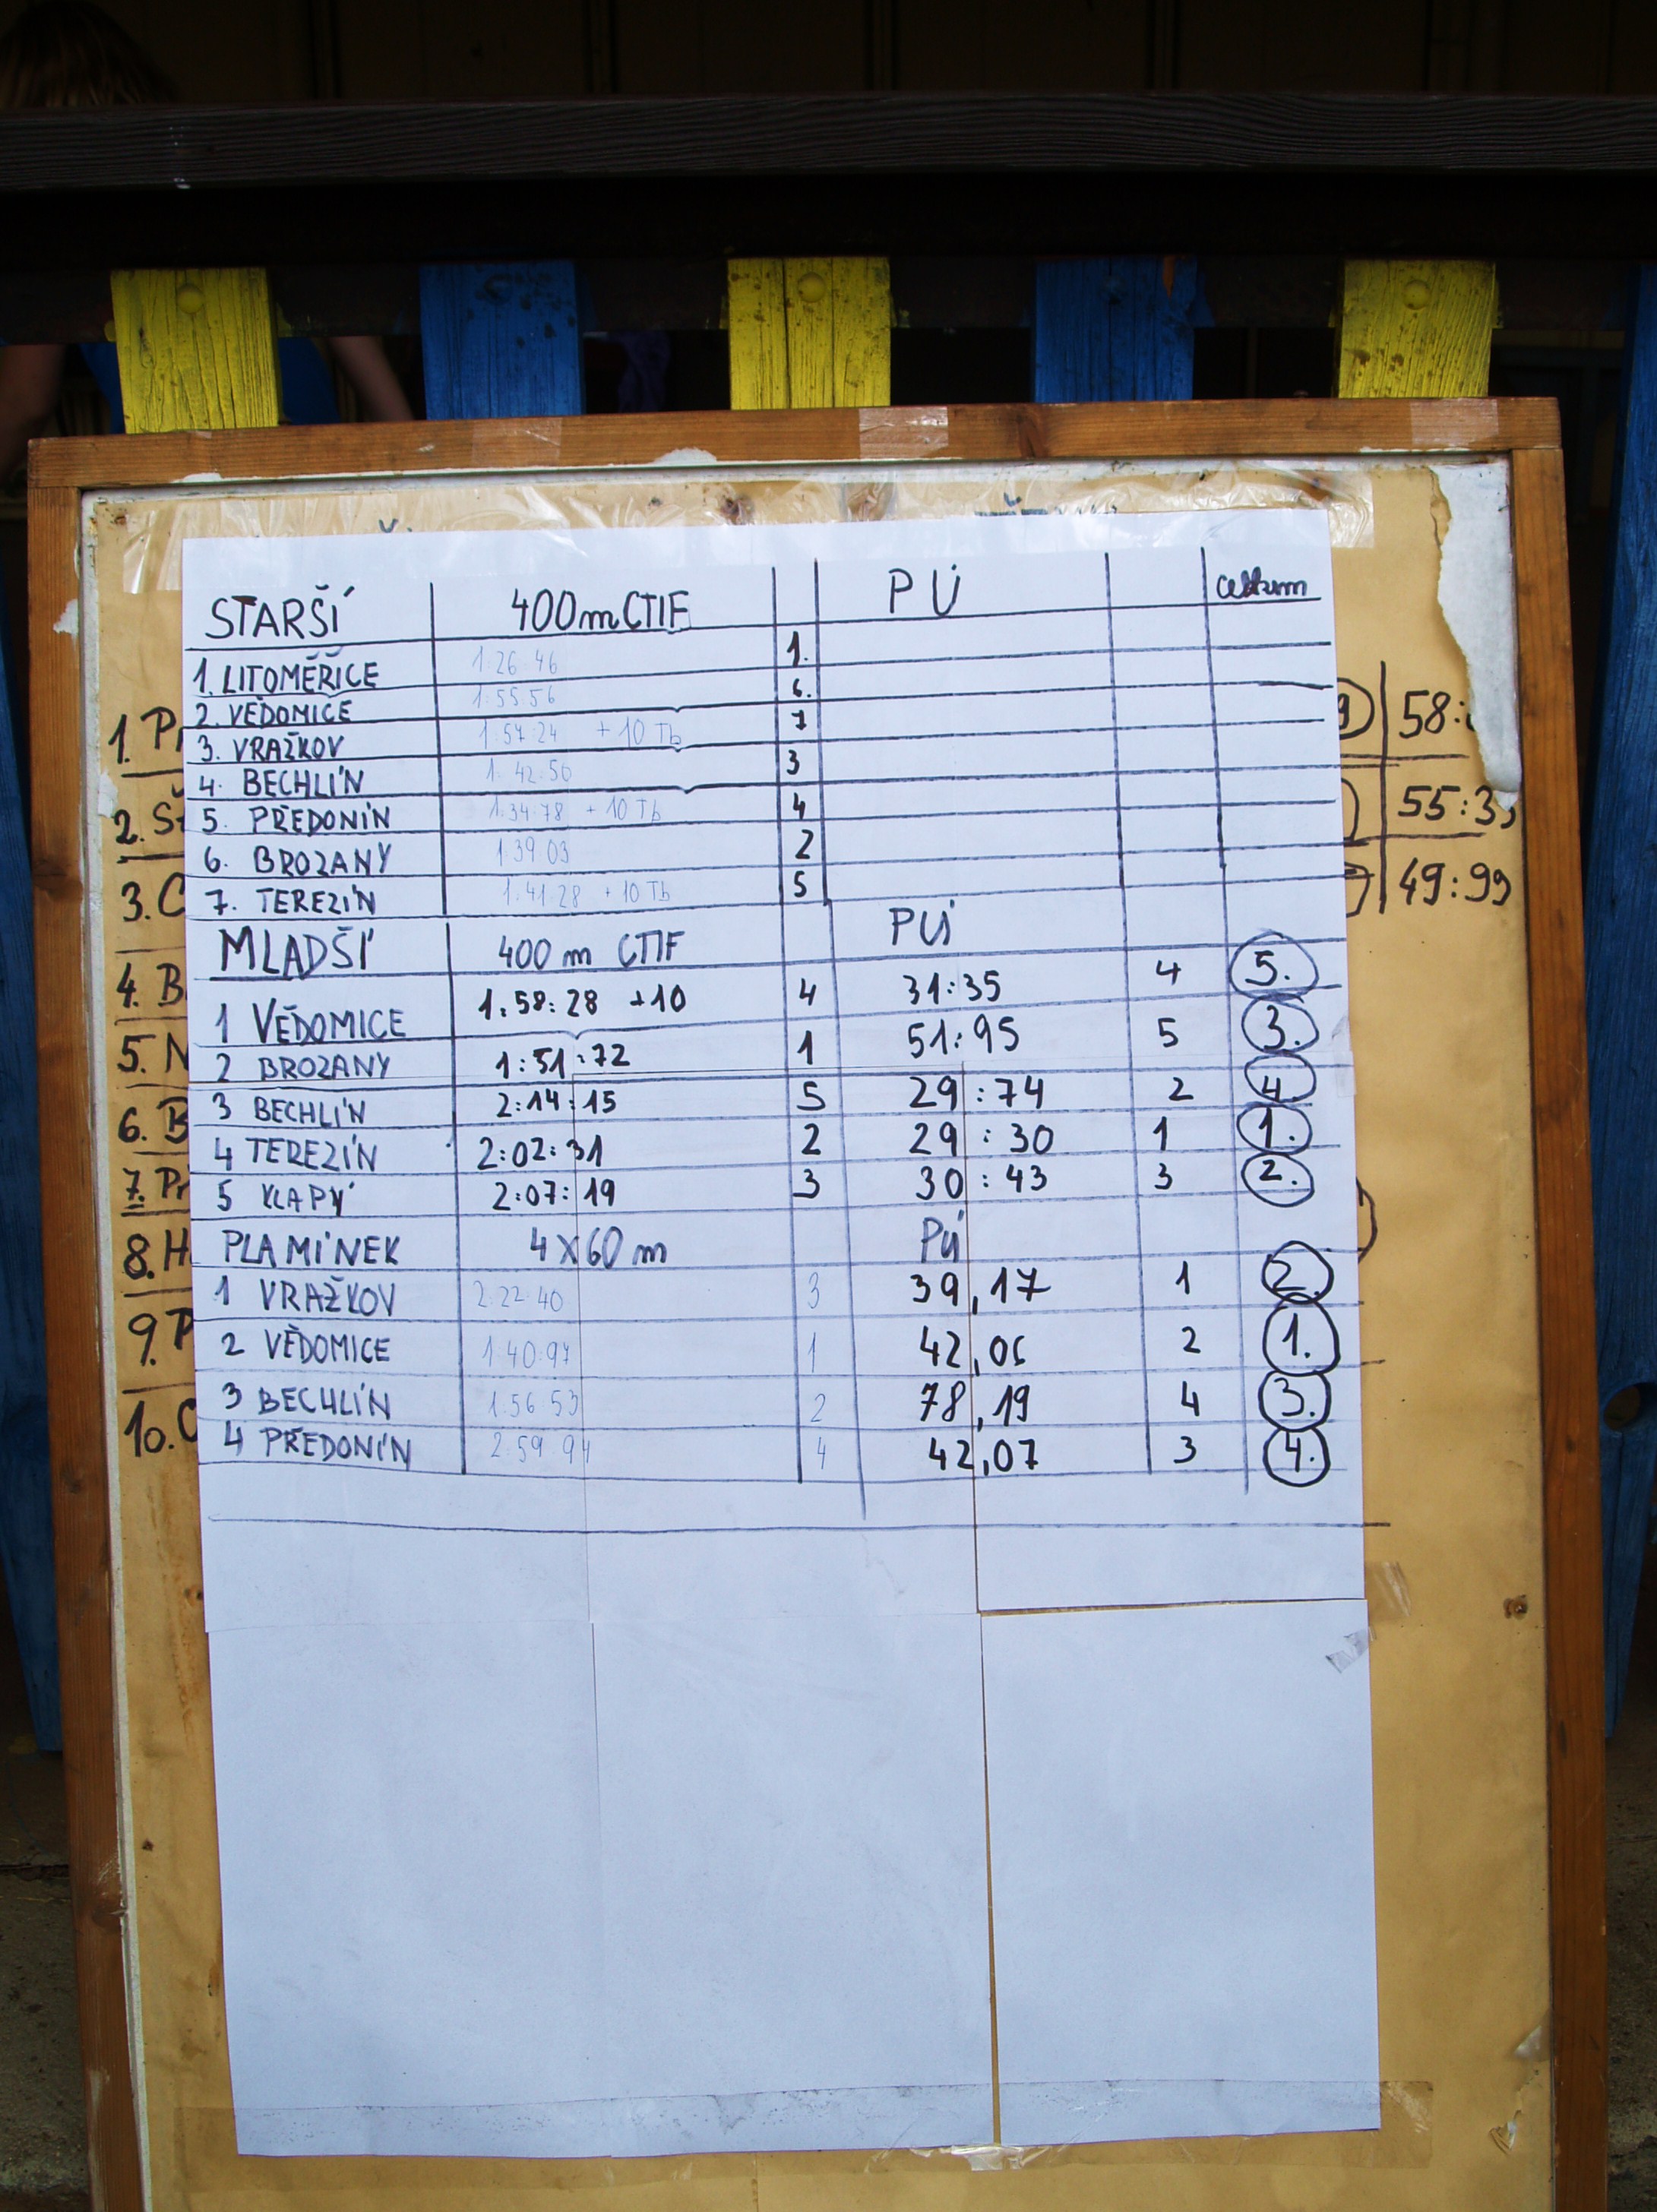 STARŠÍ 400m CTIF PÚ celkem
1. LITOMĚŘICE 1:26:46 1.
2. VĚDOMICE 1:55:56 6.
3. VRAŽKOV 1:54:24 +10 Tb 7
4. BECHLÍN 1:42:50 3
5. PŘEDONÍN 1:34:78 +10 Tb 4
6. BROZANY 1:39 03 2
7. TEREZÍN 1:41:28 +10 Tb 5
MLADŠÍ 400 m CTIF PÚ
1 VĚDOMICE 1:58:28 +10 4 31:35 4 5.
2 BROZANY 1:51:72 1 51:95 5 3.
3 BECHLÍN 2:14:15 5 29:74 2 4.
4 TEREZÍN 2:02:31 2 29:30 1 1.
5 KLAPÝ 2:07:19 3 30:43 3 2.
PLAMÍNEK 4x60 m PÚ
1 VRAŽKOV 2:22:40 3 39,17 1 2.
2 VĚDOMICE 1:40:97 1 42,06 2 1.
3 BECHLÍN 1:56 53 2 78,19 4 3.
4 PŘEDONÍN 2:59 94 4 42,07 3 4.
1. 58:
2. 55:35
3. 49:99
4. B
5. N
6. B
7. Př
8. H
9. P
10.